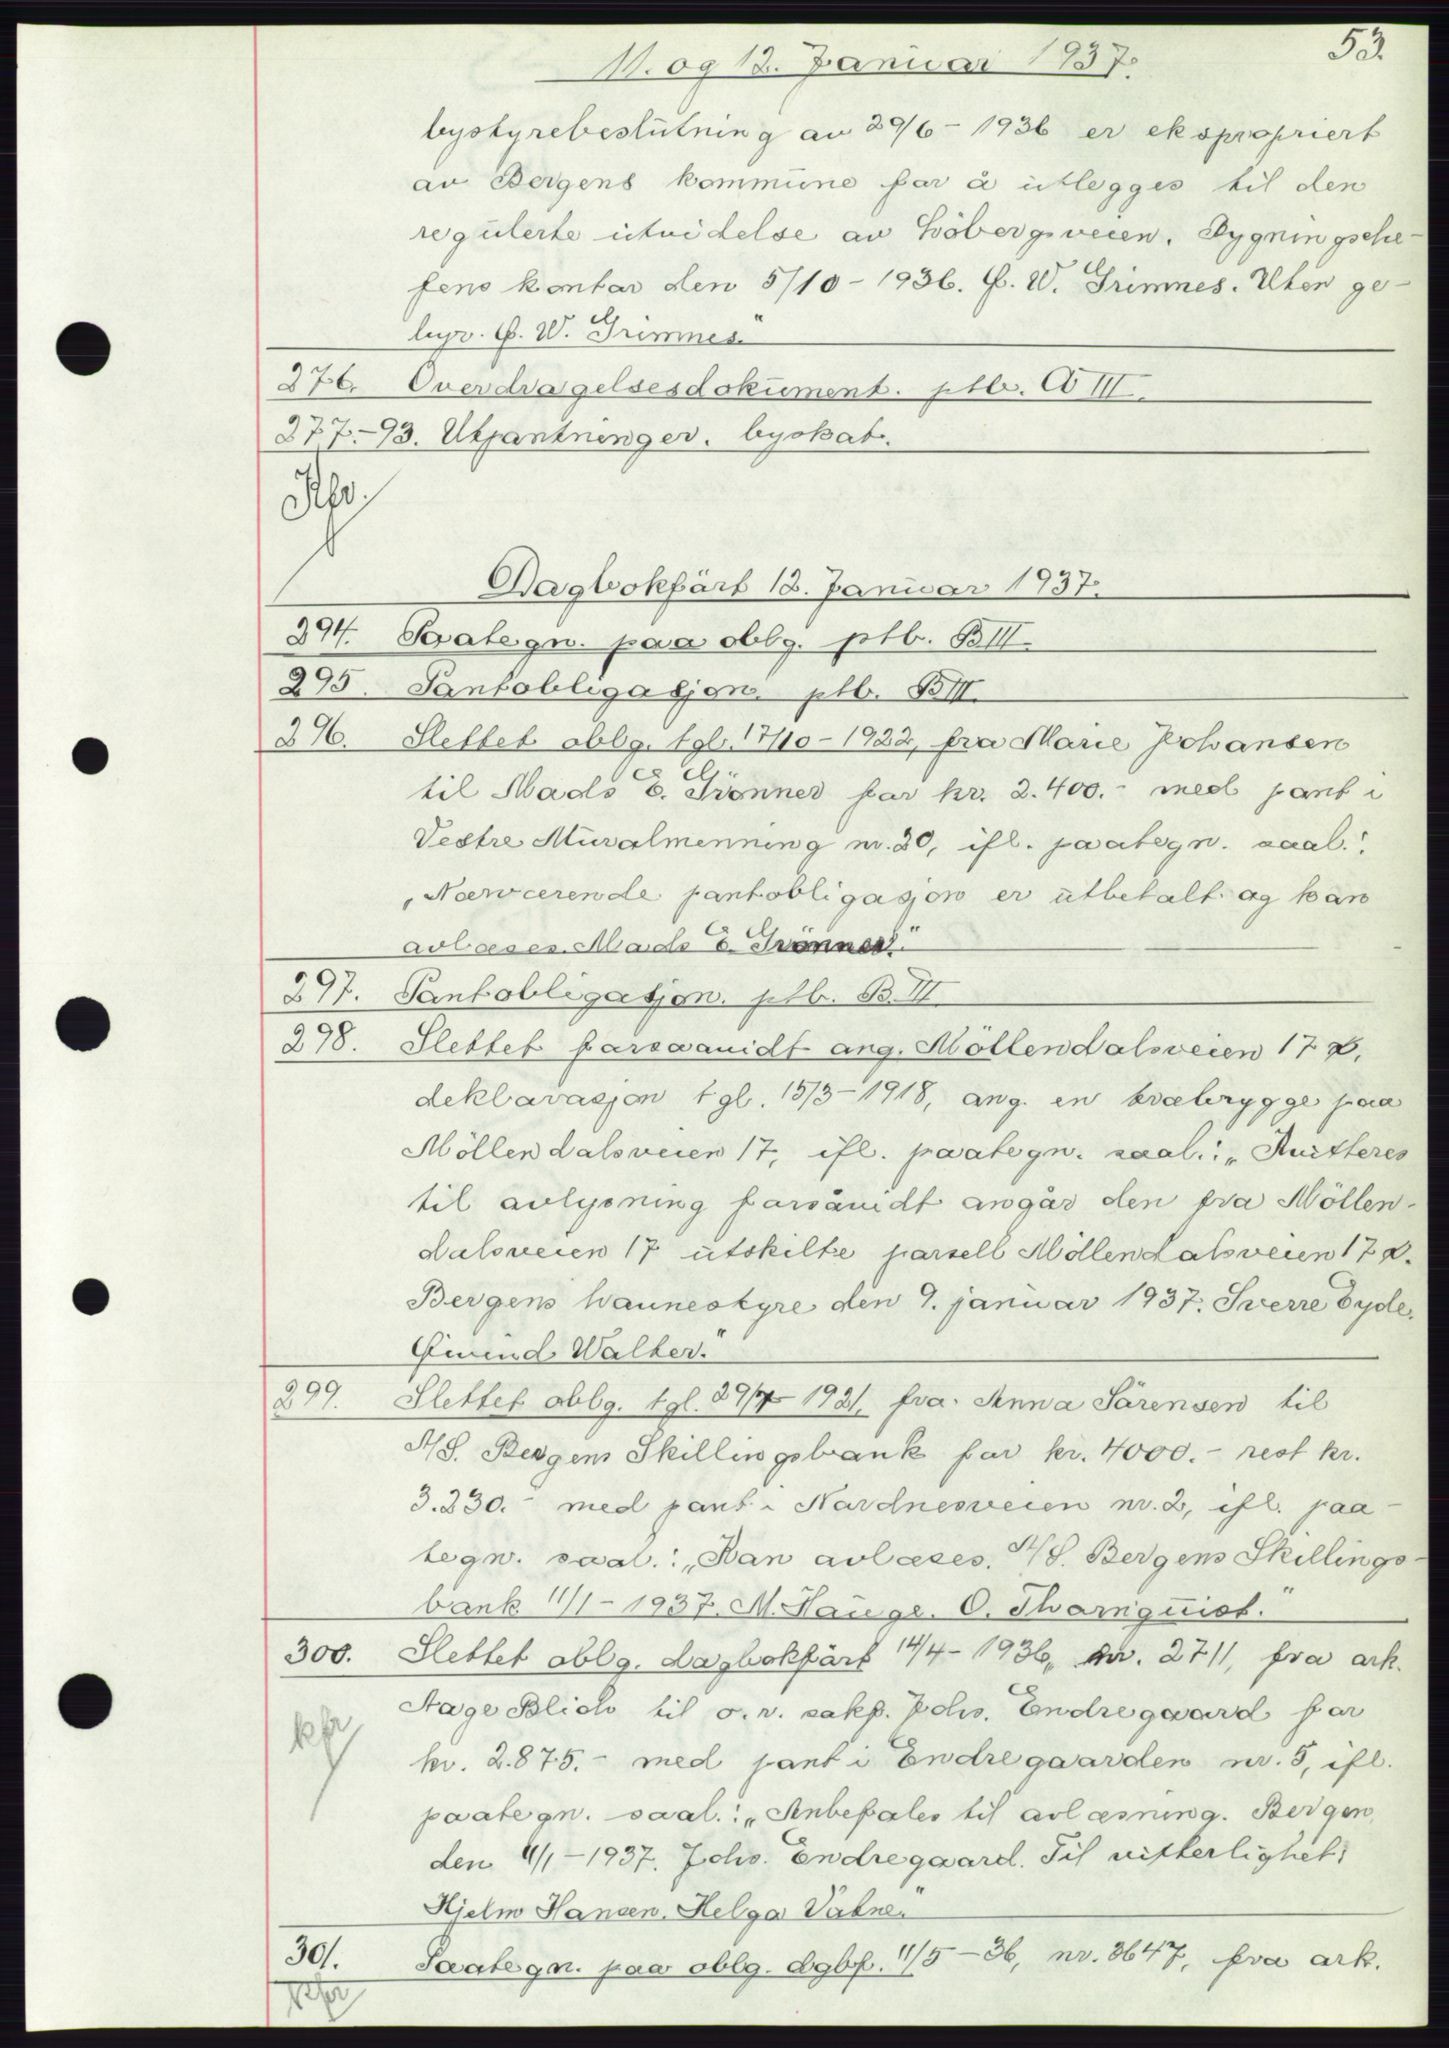 53.
11. og 12. Januar 1937.
bystyrebeslutning av 29/6 - 1936 er ekspropriert
av Bergens kommune for å utlegges til den
regulerte utvidelse av Löbergsveien. Bygningsche-
fens kontor den 5/10 - 1936. G. W. Grimnes. Uten ge-
byr. G. W. Grimnes."
276. Overdragelsesdokument. ptb. A III.
277.-93. Utpantninger. byskat.
Dagbokfört 12. Januar 1937.
294. Paategn. paa oblg. ptb. B III.
295. Pantobligasjon. ptb. B III.
296. Slettet oblg. tgl. 17/10 - 1922, fra Marie Johansen
til Mads E. Grönner for kr. 2.400.- med pant i
Vestre Muralmenning nr. 20, ifl. paategn. saal.:
"Nærværende pantobligasjon er utbetalt og kan
avlæses. Mads E. Grönner."
297. Pantobligasjon. ptb. B. III
298. Slettet forsaavidt ang. Möllendalsveien 17
deklarasjon tgl. 15/3 - 1918, ang. en træbrygge paa
Möllendalsveien 17, ifl. paategn. saal.: "Kvitteres
til avlysning forsåvidt angår den fra Möllen-
dalsveien 17 utskilte parsell Möllendalsveien 17
Bergens havnestyre den 9. januar 1937. Sverre Eyde.
Walter."
299. Slettet oblg. tgl. 29/7 - 1921, fra Anna Sörensen til
A/S. Bergens Skillingsbank for kr. 4000.- rest kr.
3.230.- med pant i Nordnesveien nr. 2, ifl. paa-
tegn. saal.: "Kan avlæses. A/S. Bergens Skillings-
bank 11/1 - 1937. M. Hauge. O. Thornquist."
300. Slettet oblg. dagbokfört 14/4 - 1936, nr. 2711, fra ark.
Aage Blich til o.r. sakf. Johs. Endregaard for
kr. 2.875.- med pant i Endregaarden nr. 5, ifl.
paategn. saal.: "Anbefales til avlæsning. Bergen,
den 11/1 - 1937. Johs. Endregaard. Til vitterlighet:
Hjelm Hansen. Helga Vatne."
301. Paategn. paa oblg. dgbf. 11/5 - 36, nr. 3647, fra ark.